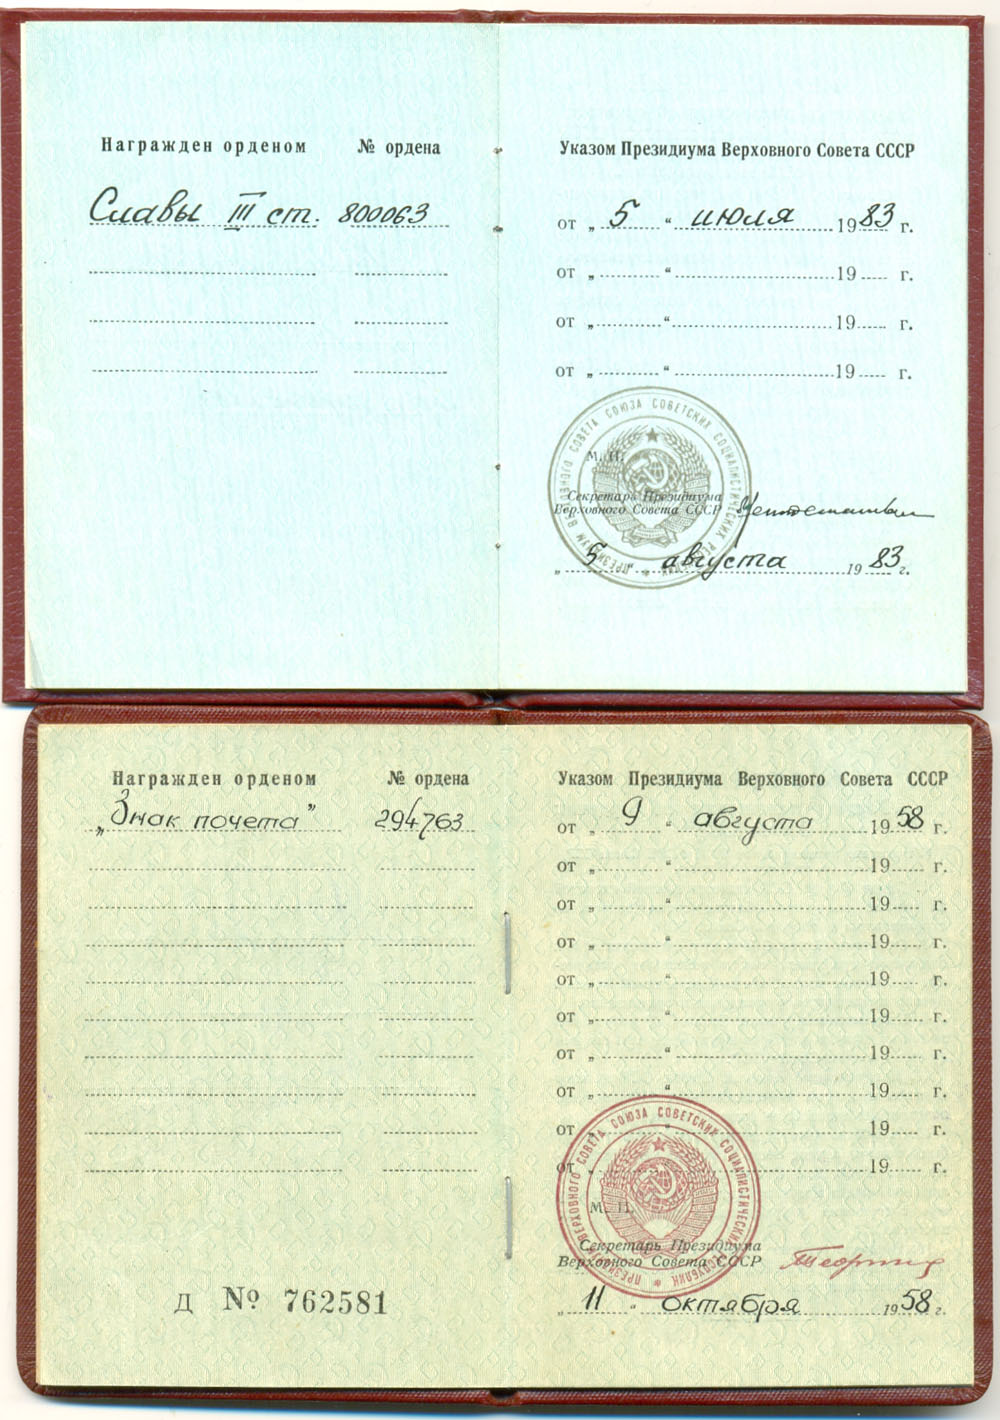 Награжден орденом № ордена
Славы III ст. 800063
Указом Президиума Верховного Совета СССР
от „ 5 “ июля 1983 г.
от „ “ 19 г.
от „ “ 19 г.
от „ “ 19 г.
ПРЕЗИДИУМ ВЕРХОВНОГО СОВЕТА СОЮЗА СОВЕТСКИХ СОЦИАЛИСТИЧЕСКИХ РЕСПУБЛИК
М. П.
Секретарь Президиума
Верховного Совета СССР
„ 5 “ августа 1983 г.
Награжден орденом № ордена
„Знак почета" 294763
Д № 762581
Указом Президиума Верховного Совета СССР
от „ 9 “ августа 1958 г.
от „ “ 19 г.
от „ “ 19 г.
от „ “ 19 г.
от „ “ 19 г.
от „ “ 19 г.
от „ “ 19 г.
от „ “ 19 г.
от „ “ 19 г.
от „ “ 19 г.
ПРЕЗИДИУМ ВЕРХОВНОГО СОВЕТА СОЮЗА СОВЕТСКИХ СОЦИАЛИСТИЧЕСКИХ РЕСПУБЛИК
М. П.
Секретарь Президиума
Верховного Совета СССР
„ 11 “ октября 1958 г.